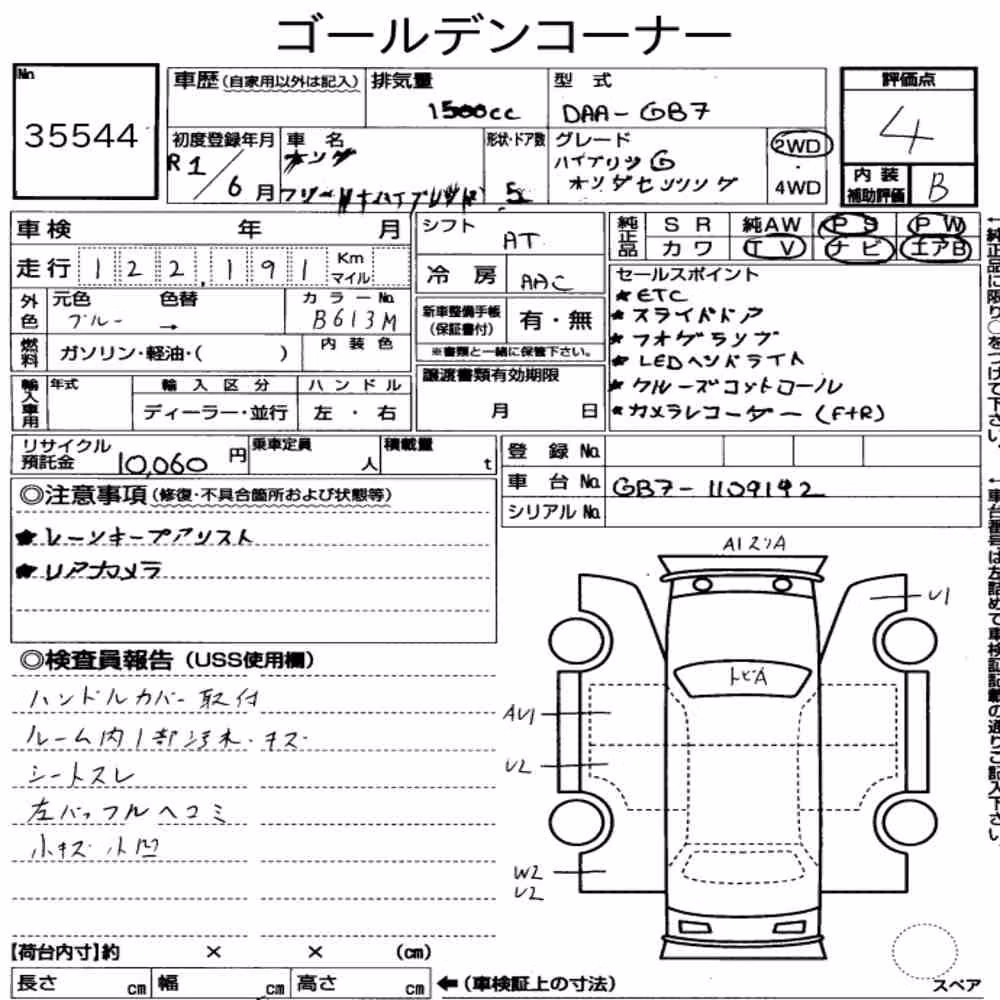 ゴールデンコーナー
No.
35544
車歴(自家用以外は記入)
排気量
1500cc
型 式
DAA-GB7
評価点
4
内装
補助評価
B
初度登録年月
R1/6月
車 名
ホンダ
フリードハイブリッド
形状・ドア数
5
グレード
ハイブリッG
ホンダセンシング
2WD
・
4WD
車検 年 月
走行 122,191 Km マイル
外色
元色
ブルー
色替
→
カラーNo.
B613M
燃料
ガソリン・軽油・( )
内装色
輸入車用
年式
輸入区分
ディーラー・並行
ハンドル
左・右
シフト
AT
冷房
AAC
新車整備手帳
(保証書付)
有・無
※書類と一緒に保管下さい。
譲渡書類有効期限
月 日
純正品
SR 純AW PS PW
カワ TV ナビ エアB
セールスポイント
★ETC
★スライドドア
★フォグランプ
★LEDヘッドライト
★クルーズコントロール
★カメラレコーダー(F+R)
←純正品に限り○をつけて下さい。
リサイクル
預託金
10,060円
乗車定員
人
積載量
t
登録No.
車台No.
GB7-1109192
シリアルNo.
←車台番号は左詰めで車検証記載の通りご記入下さい。
◎注意事項(修復・不具合箇所および状態等)
★レーンキープアシスト
★リアカメラ
◎検査員報告(USS使用欄)
ハンドルカバー取付
ルーム内1部汚れ・キズ
シートスレ
左バッフルヘコミ
小キズ 小凹
A1スリA
U1
トビA
AU1
U2
W2
U2
【荷台内寸】約 × × (cm)
長さ cm 幅 cm 高さ cm
←(車検証上の寸法)
スペア